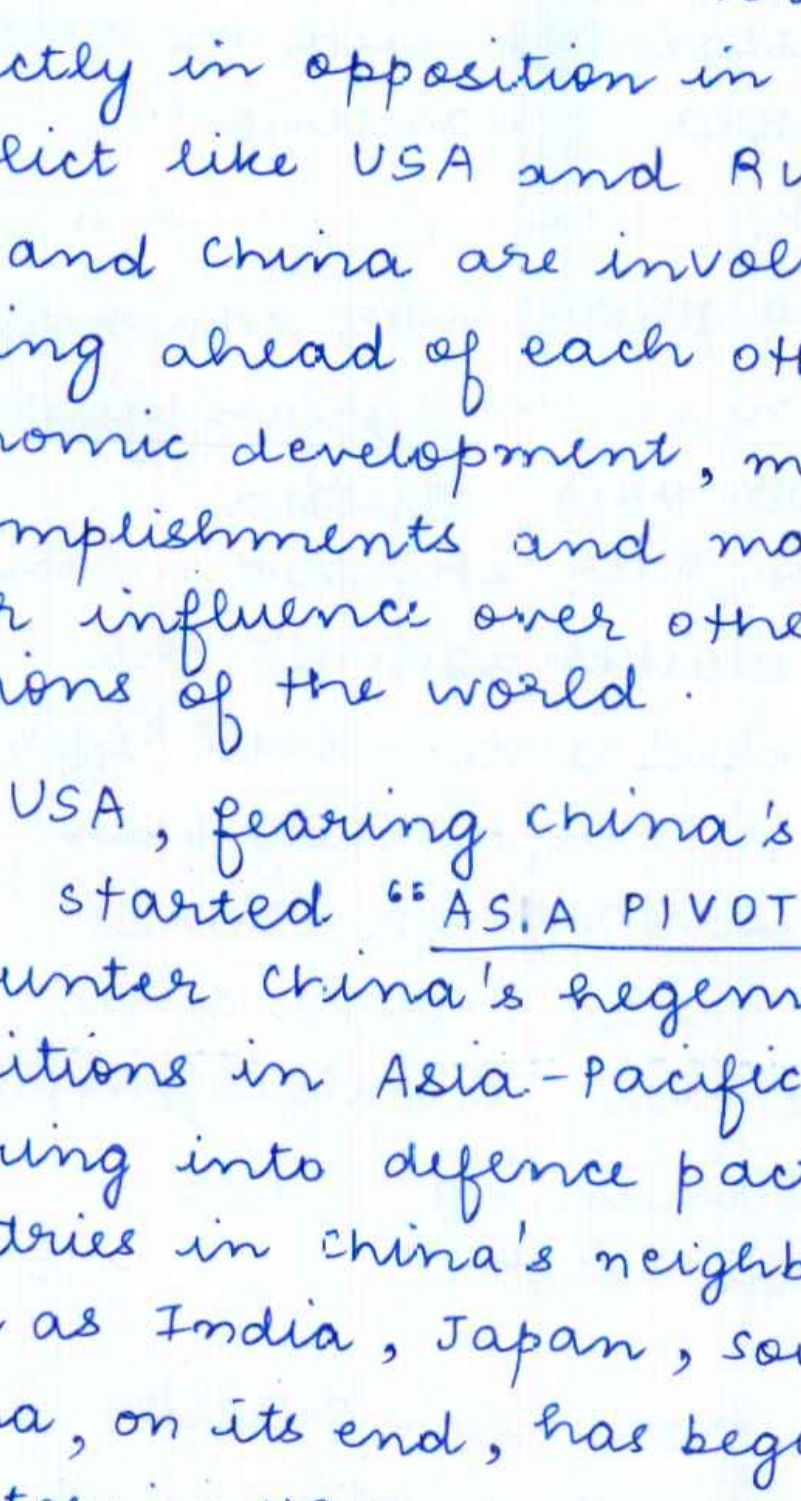 ctly in opposition in
lict like USA and Ru
and China are invol
ing ahead of each oth
nomic development, m
mplishments and mo
r influence over othe
ions of the world.
USA, fearing China's
started "ASIA PIVOT
unter China's hegem
itions in Asia-Pacific
ring into defence pac
tries in China's neighb
as India, Japan, sou
a, on its end, has beg